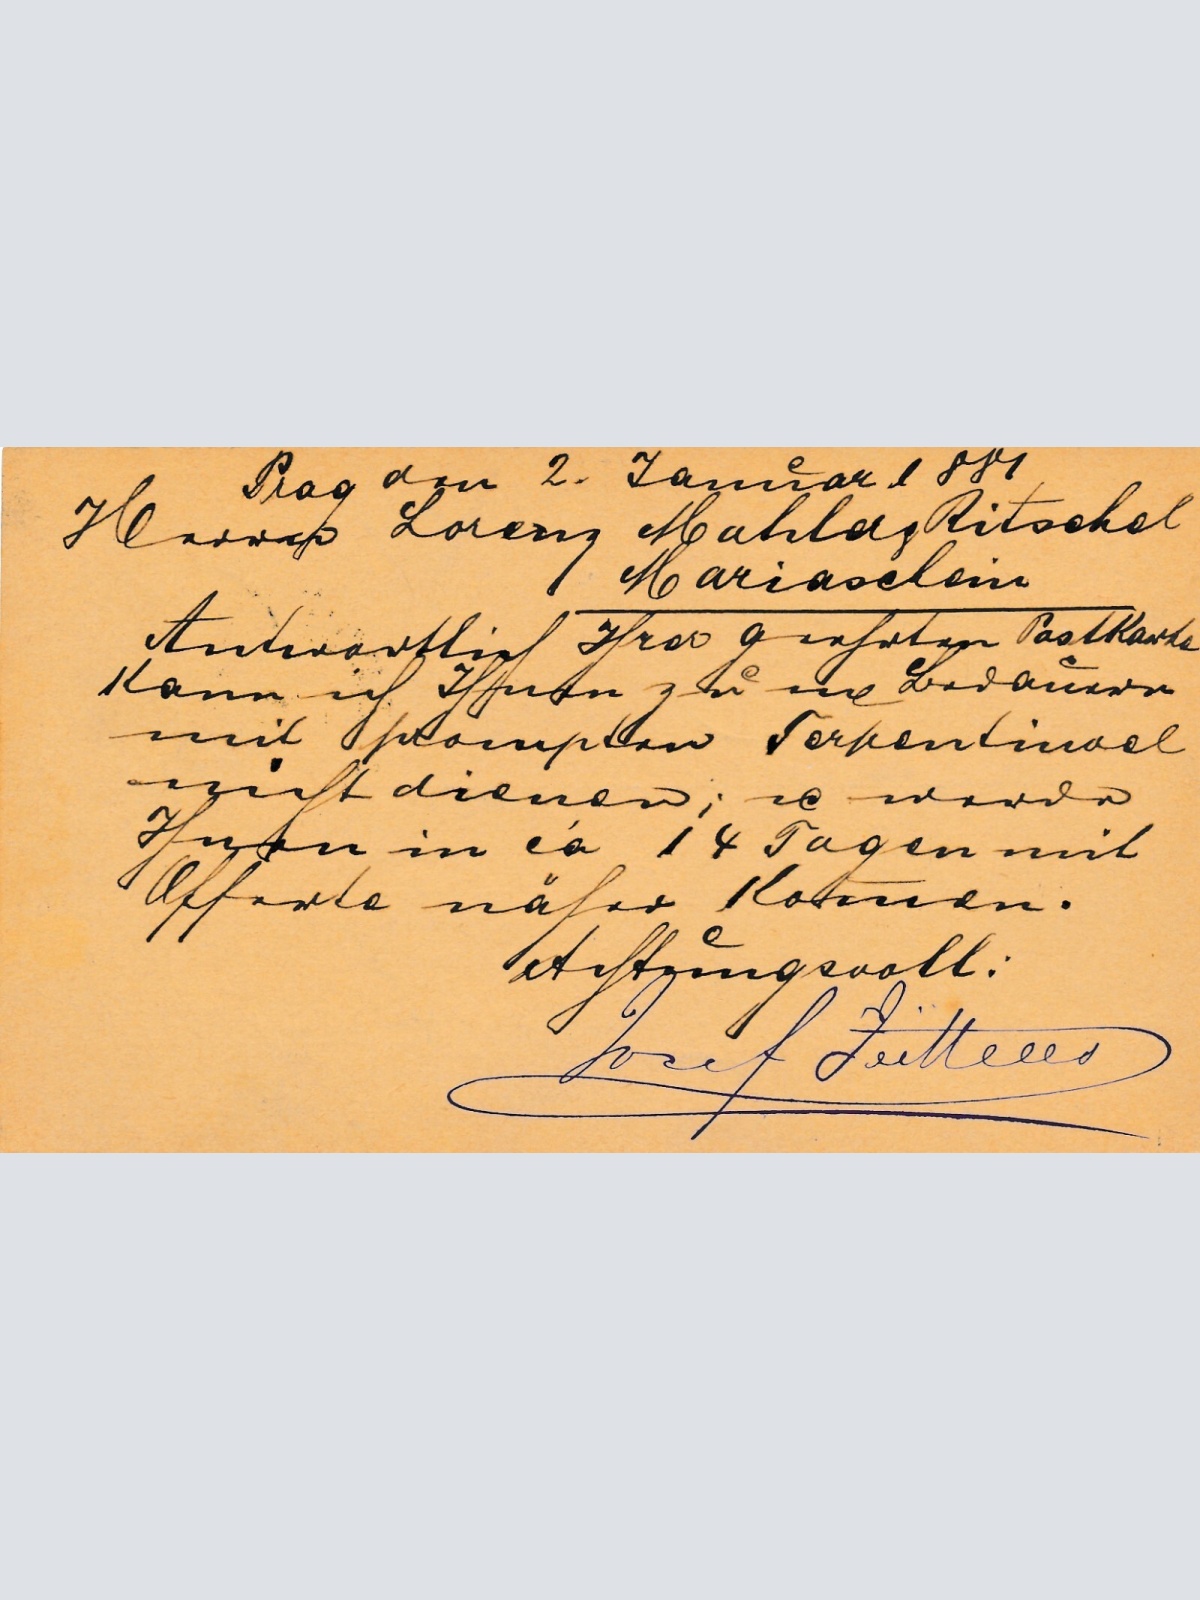 Prag den 2. Januar 1881
Herren Lorenz Mahler, Ritschel
Mariaschein
Antwortlich Ihrer geehrten Postkarte
kann ich Ihnen zu m Bedauern
mit promptem Terpentinoel
nicht dienen; u werde
Ihnen in ca 14 Tagen mit
Offerte näher kom̅en.
Achtungsvoll:
Josef